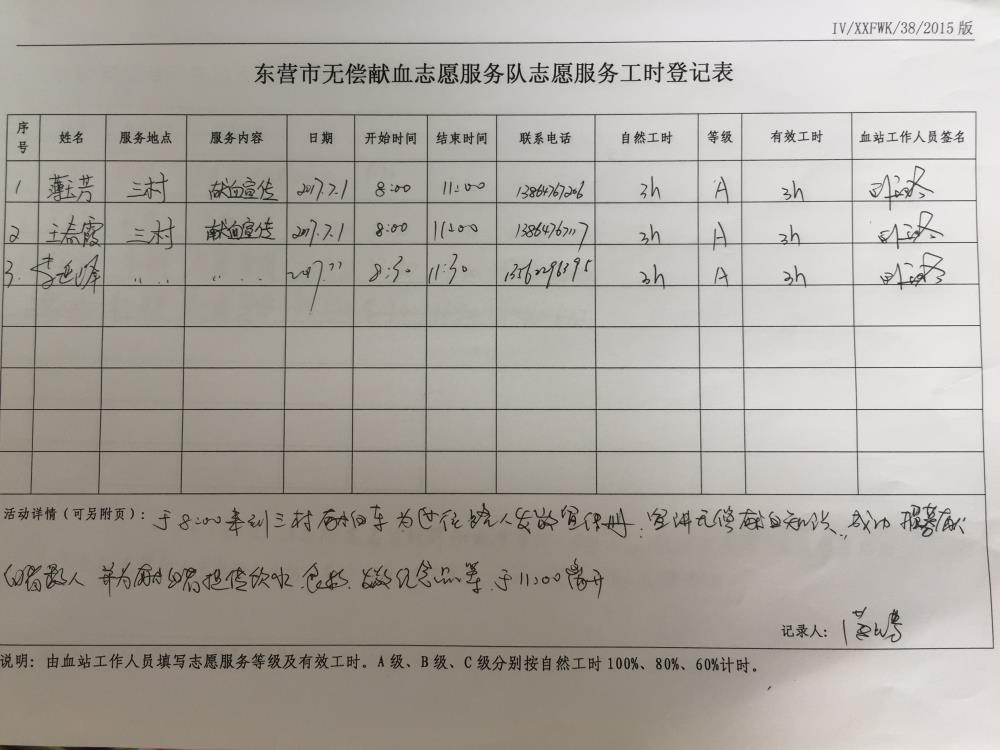 IV/XXFWK/38/2015 版
东营市无偿献血志愿服务队志愿服务工时登记表
序号 姓名 服务地点 服务内容 日期 开始时间 结束时间 联系电话 自然工时 等级 有效工时 血站工作人员签名
1 三村 献血宣传 2017.7.1 8:00 11:00 13864767206 3h A 3h
2 王春霞 三村 献血宣传 2017.7.1 8:00 11:00 13864767117 3h A 3h
3. 李延峰 〃 〃 8:30 11:30 13562296395 3h A 3h
活动详情（可另附页）：于8:00来到三村献血车为过往路人发放宣传册，宣讲无偿献血知识，成功招募献
血者数人 并为献血者提供饮水、食物、发放纪念品等，于11:00离开
记录人：
说明：由血站工作人员填写志愿服务等级及有效工时。A 级、B 级、C 级分别按自然工时 100%、80%、60%计时。